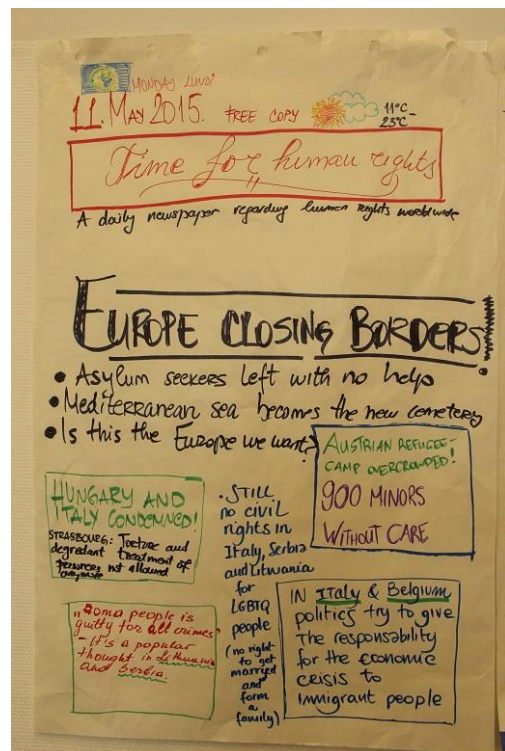 MONDAY LUNDI
11. MAY 2015. FREE COPY 11°C -
23°C
Time for human rights
A daily newspaper regarding human rights worldwide
EUROPE CLOSING BORDERS!
• Asylum seekers left with no help
• Mediterranean sea becomes the new cemetery
• Is this the Europe we want?
AUSTRIAN REFUGEE-
CAMP OVERCROWDED!
900 MINORS
WITHOUT CARE
HUNGARY AND
ITALY CONDEMNED!
STRASBOURG: Torture and
degredant treatment of
prisoners not allowed
anymore
• STILL
no civil
rights in
Italy, Serbia
and Lithuania
for
LGBTQ
people
(no right
to get
married
and
form
a
family)
"Roma people is
guilty for all crimes"
- It's a popular
thought in Lithuania
and Serbia.
IN Italy & Belgium
politics try to give
The responsability
for the economic
crisis to
immigrant people